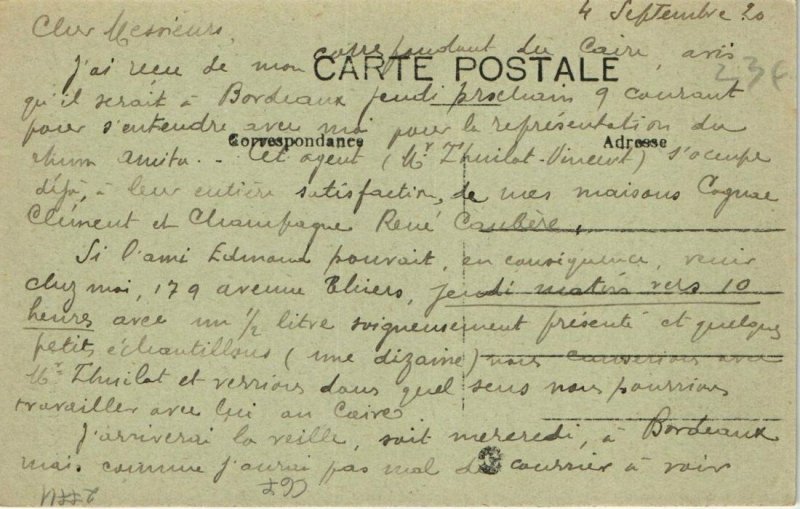 4 Septembre 20
Cher Messieurs,
J'ai reçu de mon correspondant du Caire, avis
CARTE POSTALE
qu'il serait à Bordeaux jeudi prochain 9 courant
pour s'entendre avec moi pour la représentation du
Correspondance
Adresse
rhum Amita. - Cet agent (Mr Thuilot-Vincent) s'occupe
déjà, à leur entière satisfaction, de mes maisons Cognac
Clément et Champagne René Casbère.
Si l'ami Edmond pouvait, en conséquence, venir
chez moi, 179 avenue Thiers, jeudi matin vers 10
heures avec un 1/2 litre soigneusement présenté et quelques
petits échantillons (une dizaine) nous causerions avec
Mr Thuilot et verrions dans quel sens nous pourrions
travailler avec lui au Caire
J'arriverai la veille, soit mercredi, à Bordeaux
mais comme j'aurai pas mal de courrier à voir